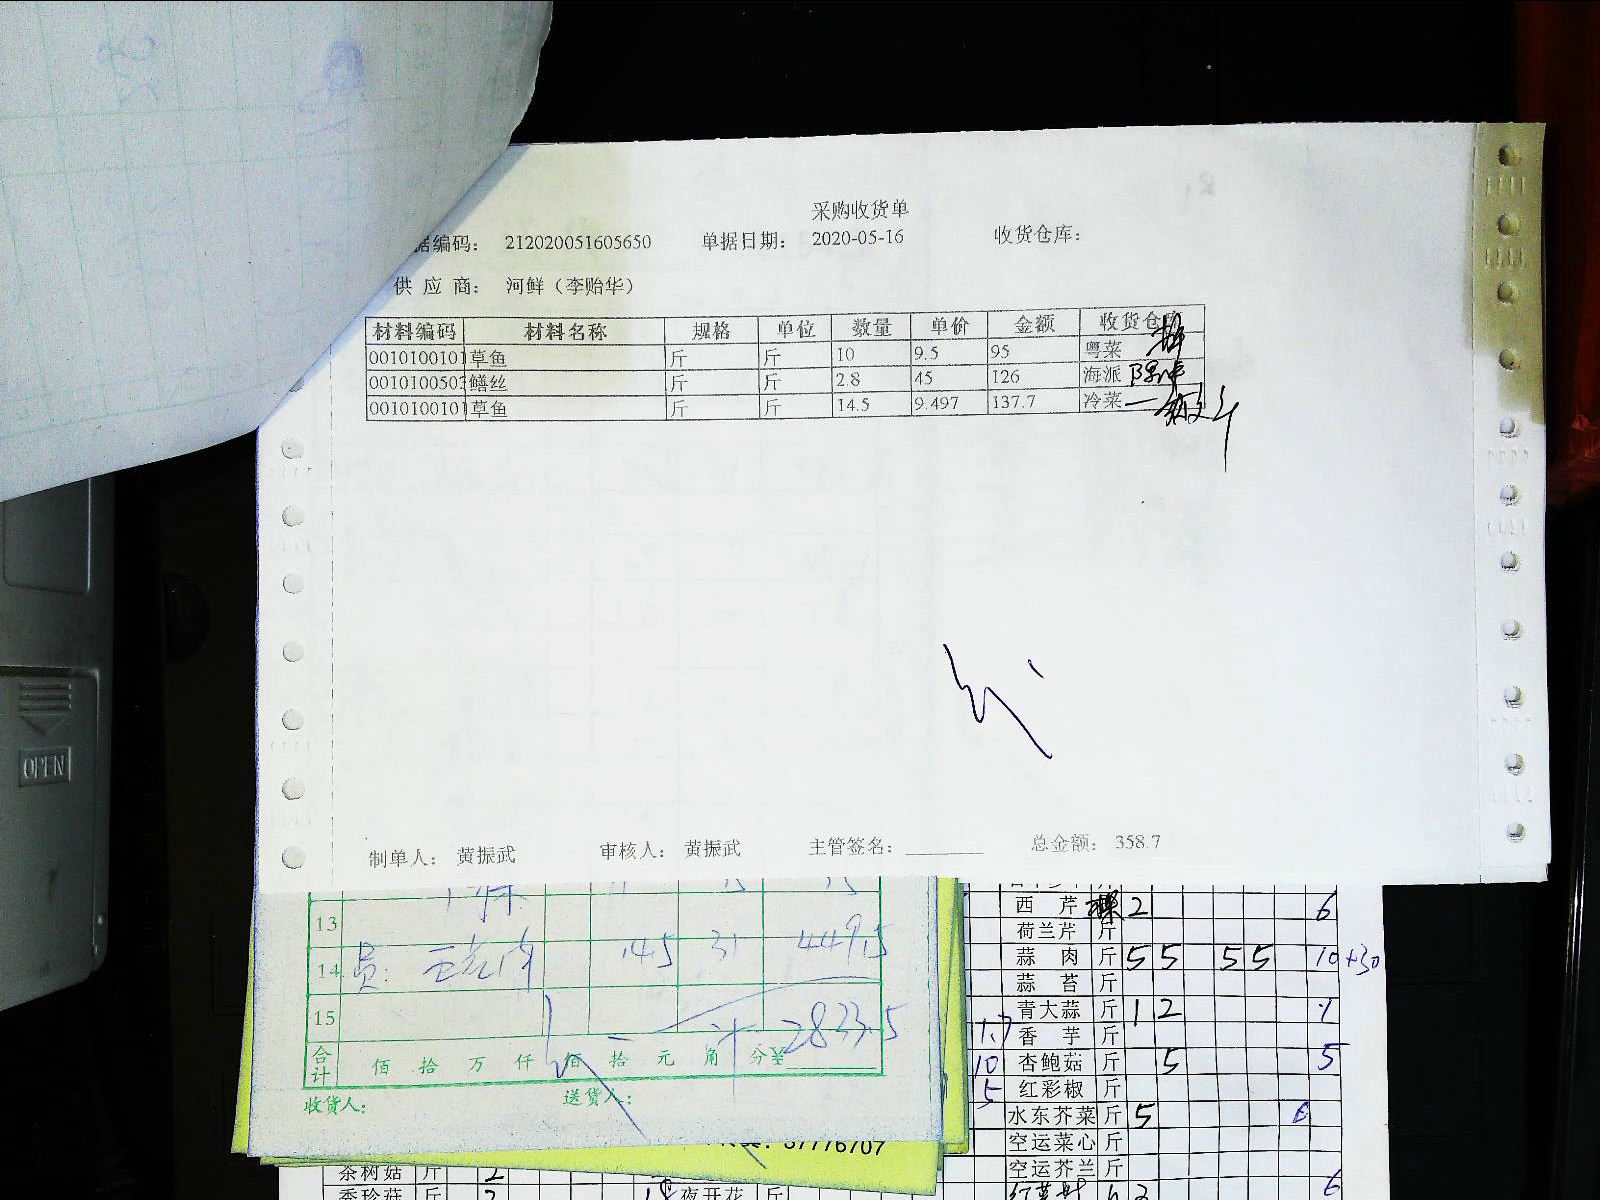 采购收货单
据编码： 212020051605650 单据日期： 2020-05-16 收货仓库：
供 应 商： 河鲜（李贻华）
材料编码 材料名称 规格 单位 数量 单价 金额 收货仓库
0010100101 草鱼 斤 斤 10 9.5 95 粤菜
001010050 鳝丝 斤 斤 2.8 45 126 海派
0010100101 草鱼 斤 斤 14.5 9.497 137.7 冷菜
OPEN
制单人： 黄振武 审核人： 黄振武 主管签名： 总金额： 358.7
13
14 145 31 449.5
15
2833.5
合计 佰 拾 万 仟 佰 拾 元 角 分¥
收货人： 送货人：
37776707
西 芹 2 6
荷兰芹 斤
蒜 肉 斤 5 5 5 5 10+30
蒜 苔 斤
青大蒜 斤 1 2
香 芋 斤
10 杏鲍菇 斤 5 5
5 红彩椒 斤
水东芥菜 斤 5 6
空运菜心 斤
空运芥兰 斤
6
茶树菇 斤 2
香珍菇 斤 2 夜开花 斤